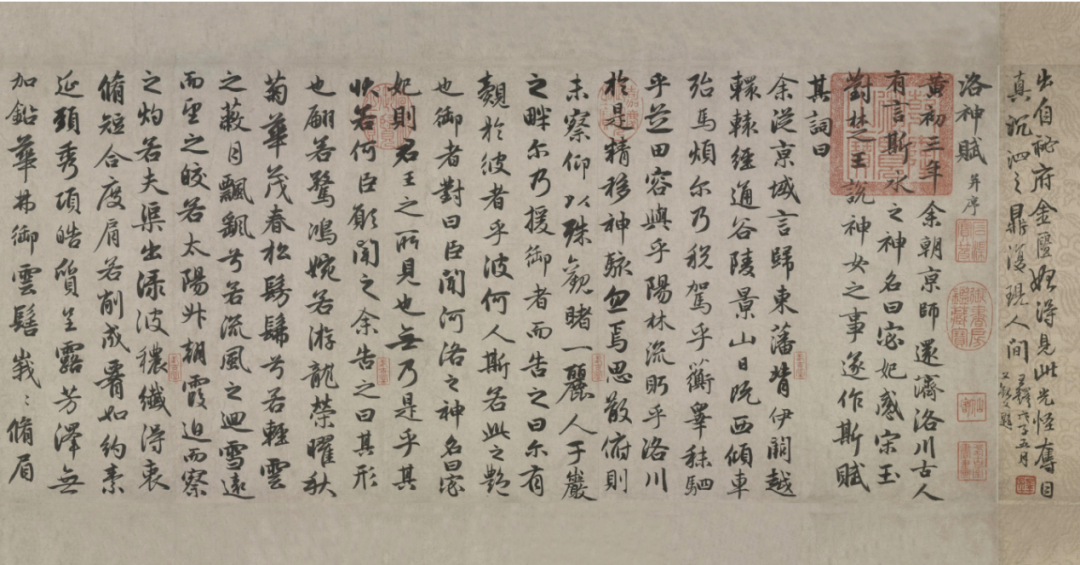 出自秘府金匱始得見此光怪奪目
真沉泗之鼎復現人間
五月
洛神賦 并序
黃初三年余朝京師還濟洛川古人
有言斯水之神名曰宓妃感宋玉
對楚王說神女之事遂作斯賦
其詞曰
余從京域言歸東藩背伊闕越
轘轅經通谷陵景山日既西傾車
殆馬煩尔乃稅駕乎蘅皋秣駟
乎芝田容與乎陽林流眄乎洛川
於是精移神駭忽焉思散俯則
未察仰以殊觀睹一麗人于巖
之畔尔乃援御者而告之曰尔有
覿於彼者乎彼何人斯若此之艷
也御者對曰臣聞河洛之神名曰宓
妃則君王之所見也無乃是乎其
狀若何臣願聞之余告之曰其形
也翩若驚鴻婉若游龍榮曜秋
菊華茂春松髣髴兮若輕雲
之蔽月飄颻兮若流風之迴雪遠
而望之皎若太陽升朝霞迫而察
之灼若夫渠出淥波穠纖得衷
脩短合度肩若削成腰如約素
延頸秀項皓質呈露芳澤無
加鉛華弗御雲髻峩〻脩眉